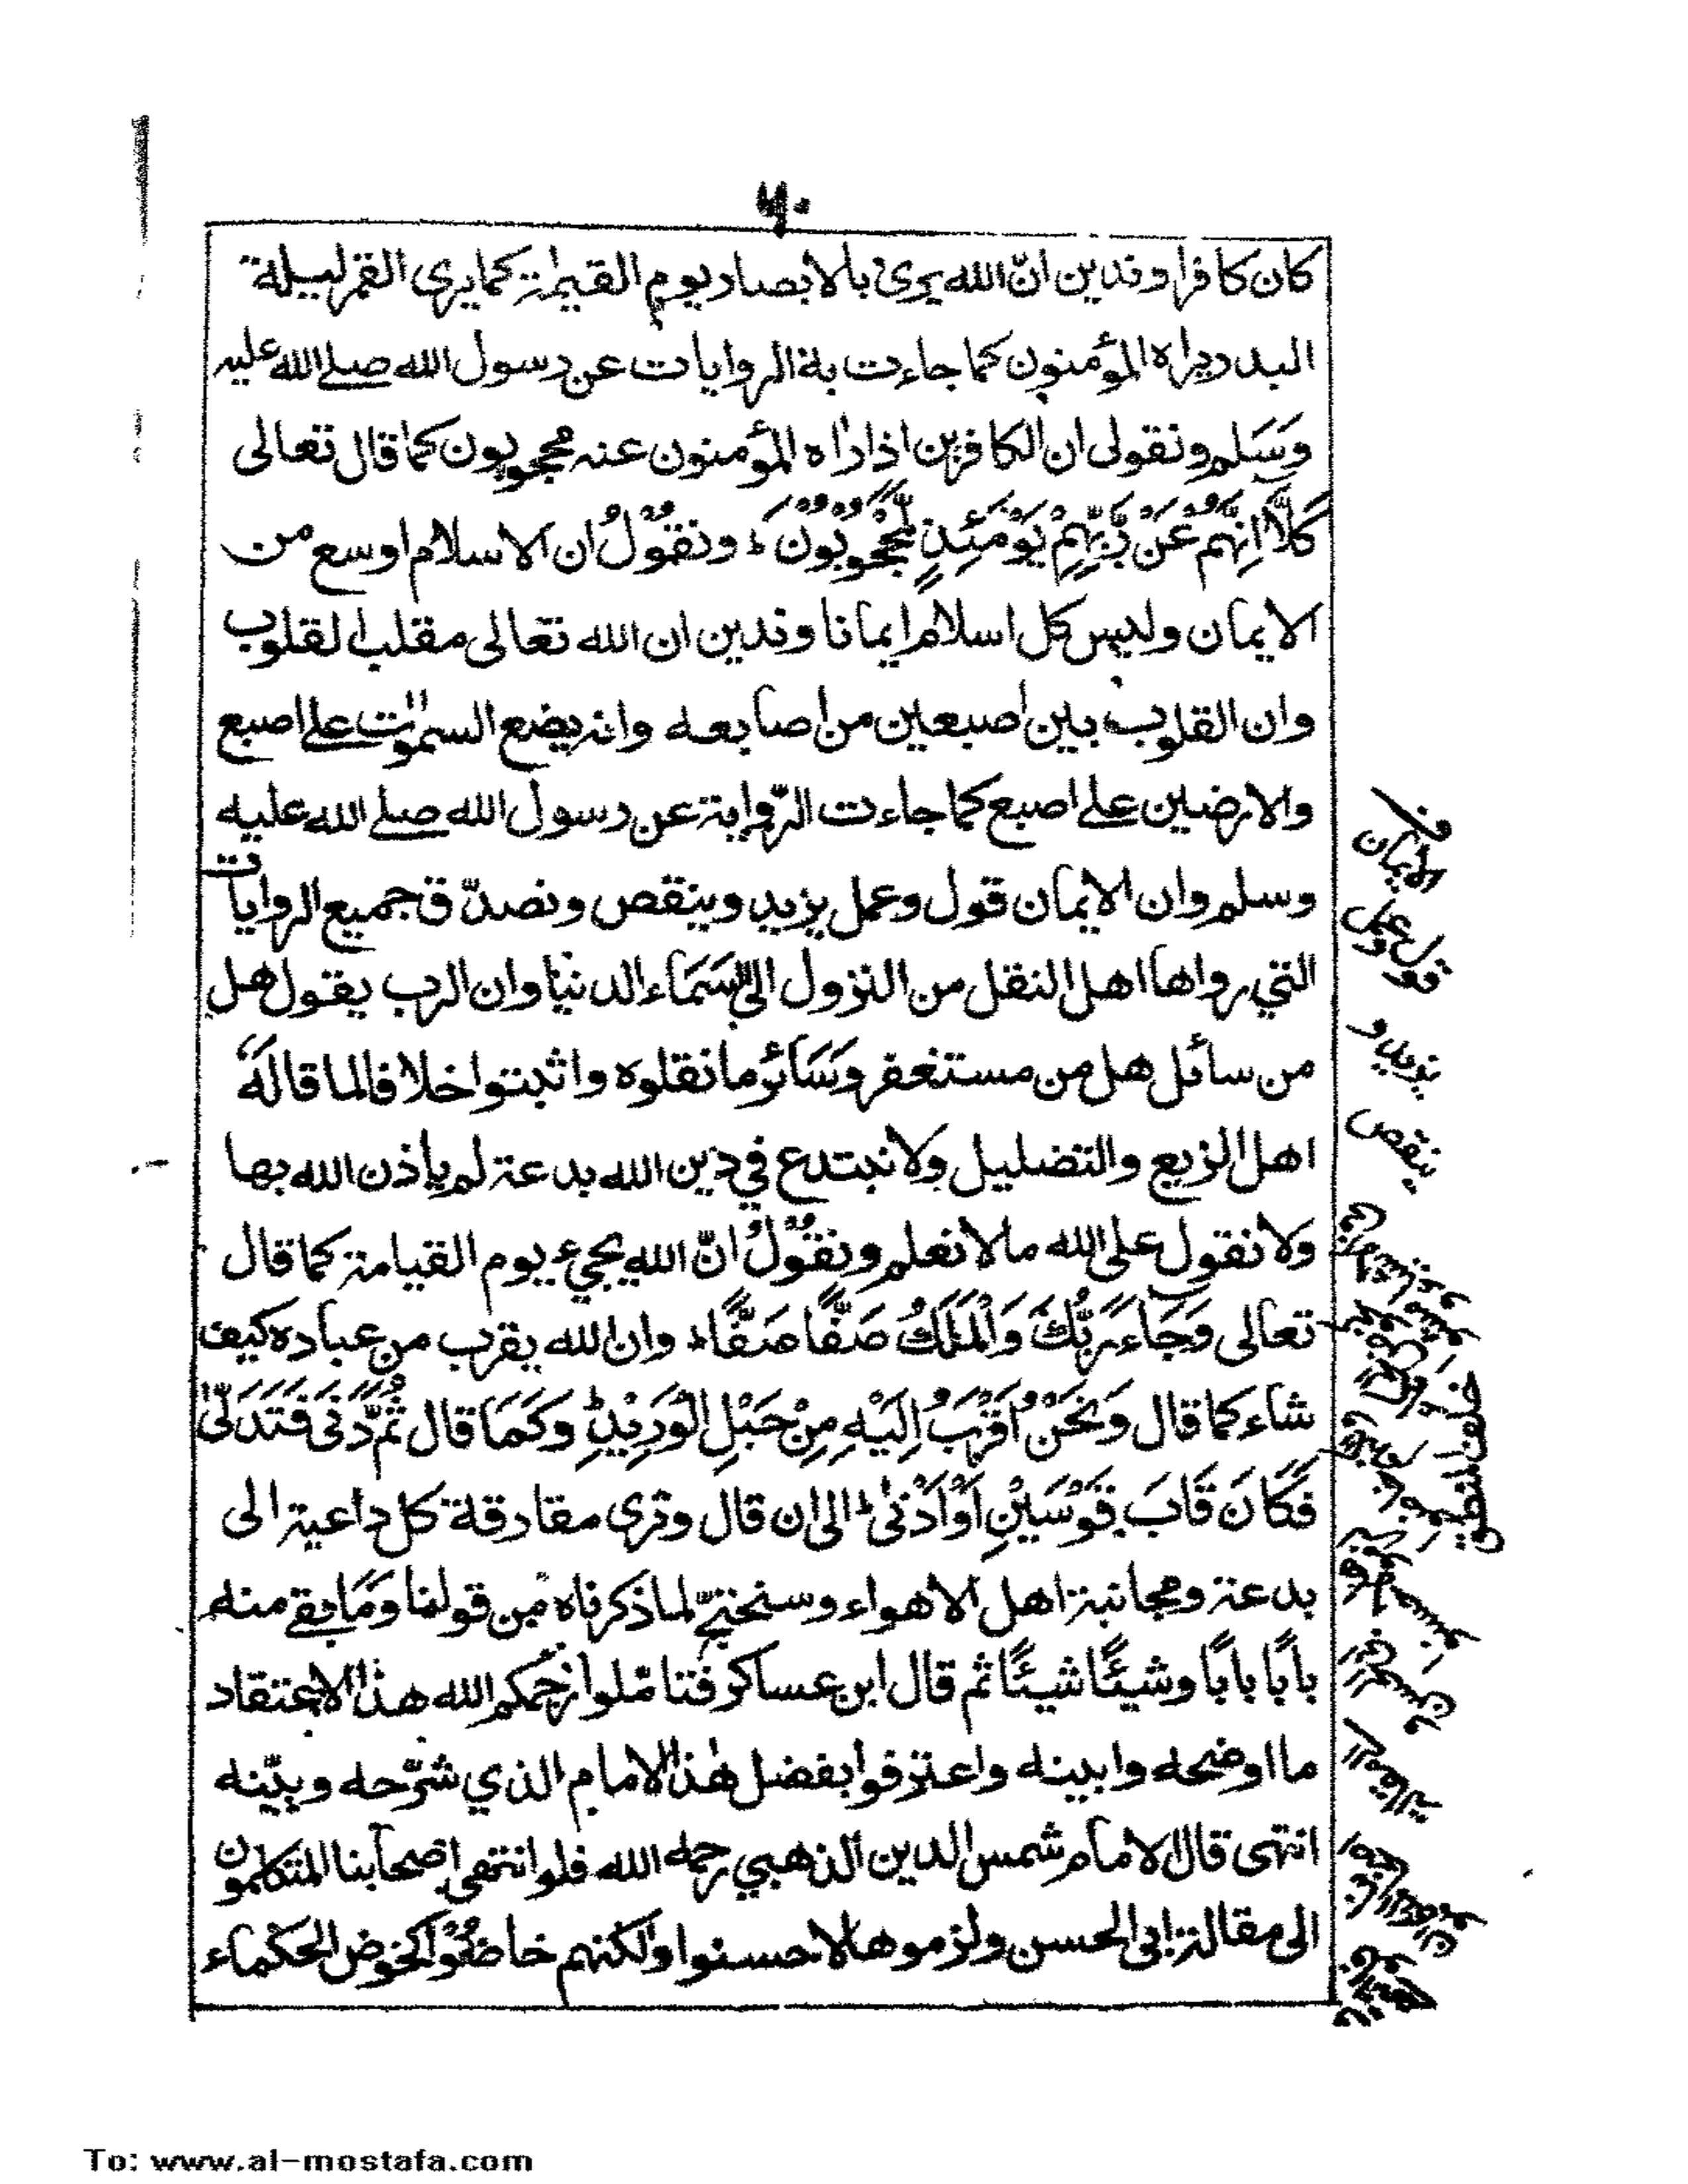 ۶۰
كان كافرا وندين انّ الله يرى بالابصار يوم القيٰمة كما يرى القمر ليلة
البدر يراه المؤمنون كما جاءت به الروايات عن رسول الله صلے الله عليه
وسَلم ونقولى ان الكافرين اذا رٰاه المؤمنون عنه محجوبون كما قال تعالى
كَلَّا اِنَّهُمْ عَنْ رَّبِّهِمْ يَوْمَئِذٍ لَّمَحْجُوْبُوْنَ ط ونقُوْلُ ان الاسلام اوسع من
الايمان وليس كل اسلام ايمانا وندين ان الله تعالى مقلب القلوب
وان القلوب بين اصبعين من اصابعه وانه يضع السمٰوٰت علے اصبع
والارضين علے اصبع كما جاءت الرّواية عن رسول الله صلے الله عليه
وسلم وان الايمان قول وعمل يزيد وينقص ونصدّق جميع الروايات
التي رواها اهل النقل من النزول الى السَمَاء الدنيا وان الرب يقول هل
من سائل هل من مستغفر وَسَائر ما نقلوه واثبتوا خلافا لما قالهَ
اهل الزيع والتضليل ولا نبتدع في دين الله بدعة لم ياذن الله بها
ولا نقول على الله ما لا نعلم ونقُوْلُ انّ الله يجيء يوم القيامة كما قال
تعالى وَجَاءَ رَبُّكَ وَالْمَلَكُ صَفًّا صَفًّا ط وان الله يقرب من عباده كيف
شاء كما قال وَنَحْنُ اَقْرَبُ اِلَيْهِ مِنْ حَبْلِ الْوَرِيْدِ ط وكَمَا قال ثُمَّ دَنٰى فَتَدَلّٰى
فَكَانَ قَابَ قَوْسَيْنِ اَوْ اَدْنٰى ط الى ان قال ونرى مفارقة كل داعية الى
بدعة ومجانبة اهل الاهواء وسنحتجّ لما ذكرناه من قولنا وَمَا بقے منه
بابًا بابًا وشيئًا شيئًا ثم قال ابن عساكر فتامّلوا رحمكم الله هذا الاعتقاد
ما اوضحه وابينه واعترفوا بفضل هٰذا الامام الذي شرّحه وبيّنه
انتهى قال الامام شمس الدين الذهبي رحمه الله فلو انتهى اصحابنا المتكلمون
الى مقالة ابى الحسن ولزموها لاحسنوا ولكنهم خاضُوْا كخوض الحكماء
الايمان
قول وعمل
يزيد و
ينقص
To: www.al-mostafa.com